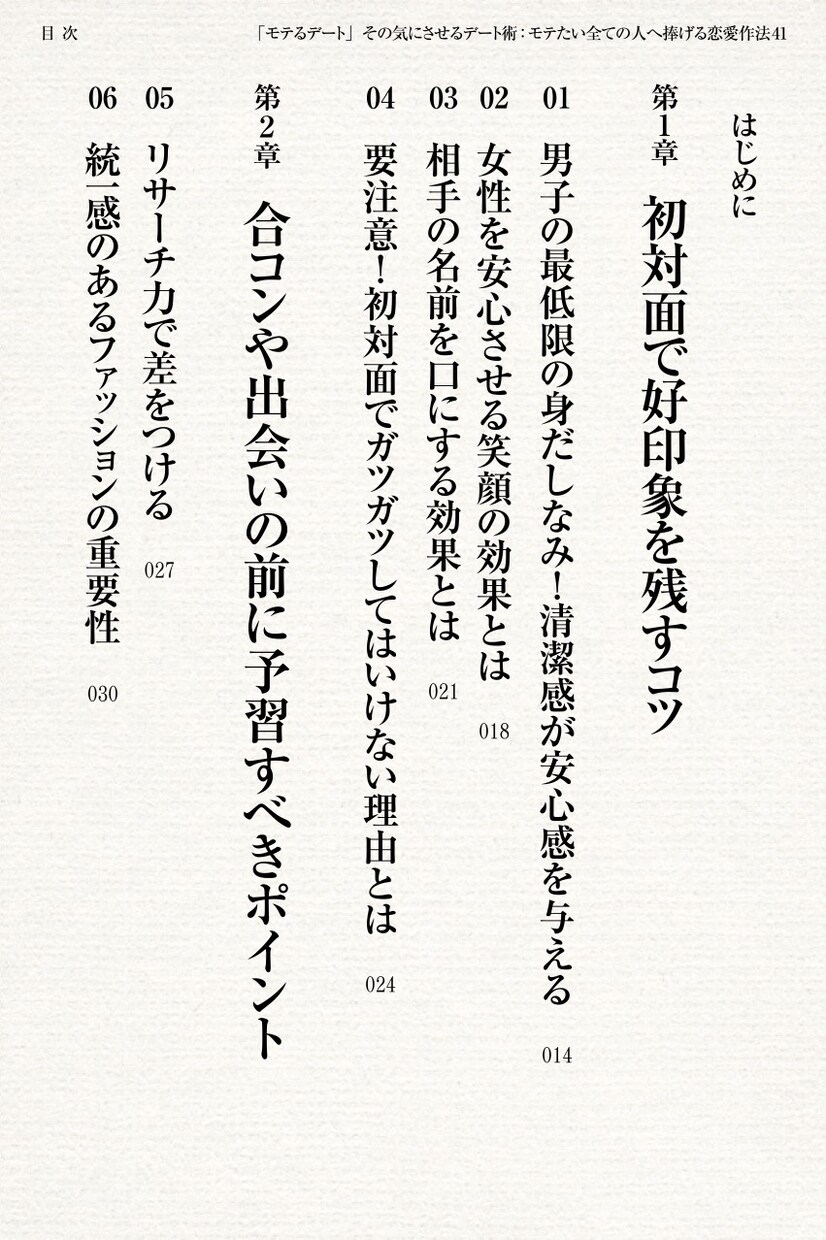 目次
「モテるデート」その気にさせるデート術：モテたい全ての人へ捧げる恋愛作法41
はじめに
第1章 初対面で好印象を残すコツ
01 男子の最低限の身だしなみ！清潔感が安心感を与える 014
02 女性を安心させる笑顔の効果とは 018
03 相手の名前を口にする効果とは 021
04 要注意！初対面でガツガツしてはいけない理由とは 024
第2章 合コンや出会いの前に予習すべきポイント
05 リサーチ力で差をつける 027
06 統一感のあるファッションの重要性 030